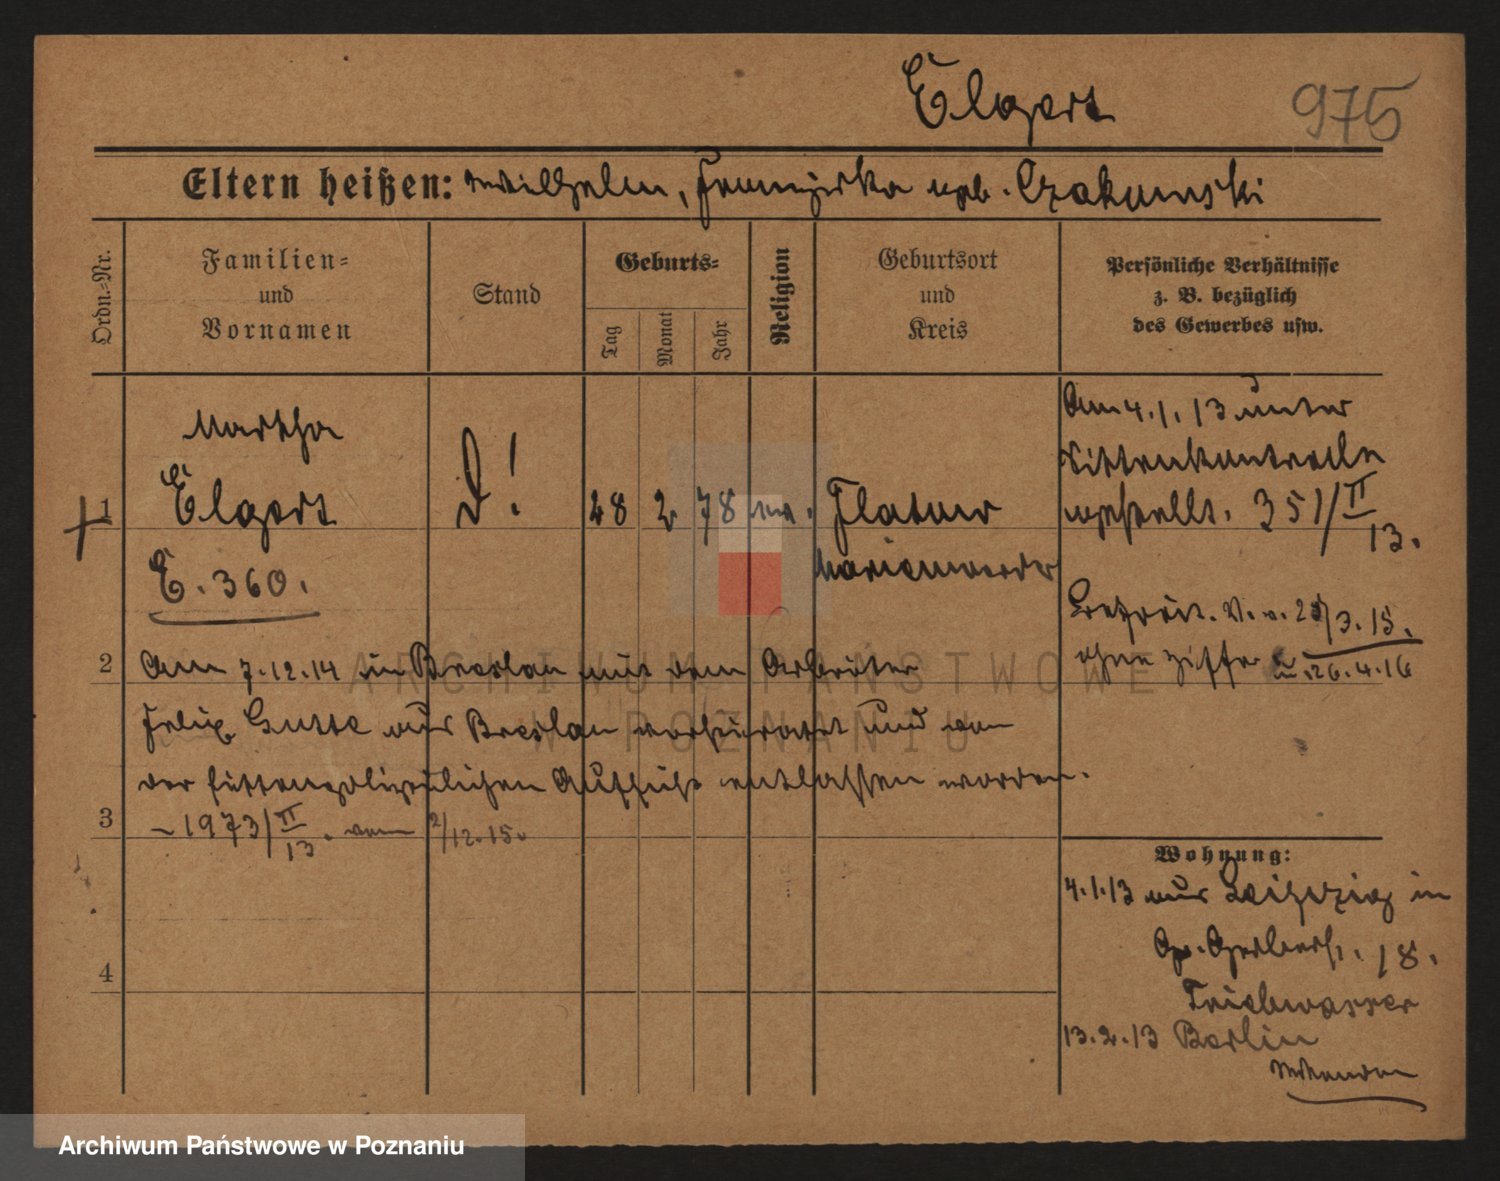 Elgert
975
Eltern heißen: Wilhelm, Franziska geb. Czakanski
Ordn.-Nr.
Familien-
und
Vornamen
Stand
Geburts-
Tag
Monat
Jahr
Religion
Geburtsort
und
Kreis
Persönliche Verhältnisse
z. B. bezüglich
des Gewerbes usw.
1
Martha
Elgert
E. 360.
D!
28
2
78
Flatow
Marienwerder
Am 4.1.13 unter
Sittenkontrolle
gestellt. 351/II
13.
3.15.
ohne Ziffer 26.4.16
2
Am 7.12.14 in Breslau mit dem Arbeiter
Felix Gutte aus Breslau verheiratet und von
der sittenpolizeilichen Aufsicht entlassen worden.
3
- 1973/II
13. vom 2/12.15.
4
Wohnung:
4.1.13 aus Leipzig in
Gr. Gerberstr. 18.
Triebwasser
13.2.13 Berlin
ARCHIWUM PAŃSTWOWE
W POZNANIU
Archiwum Państwowe w Poznaniu